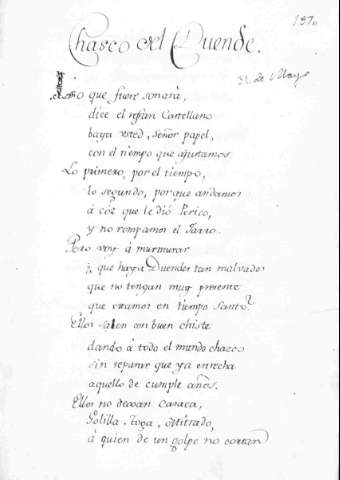 187
Chasco del Duende.
31 de Mayo
Como que fuere sonarà,
dice el refran Castellano
baya usted, señor papel,
con el tiempo que ajustamos.
Lo primero, por el tiempo,
lo segundo, porque andamos
à côz que le diò Perico,
y no rompamos el Jarro.
Pero voy à murmurar
q̃ haya Duendes tan malvados
que no tengan muy presente
que estamos en tiempo Santo?
Ellos salen con buen chiste
dando à todo el mundo chasco
sin reparar que ya estrecha
aquello de cumple años.
Ellos no dexan Casaca,
Golilla, Toga,
à quien de un golpe no cortan